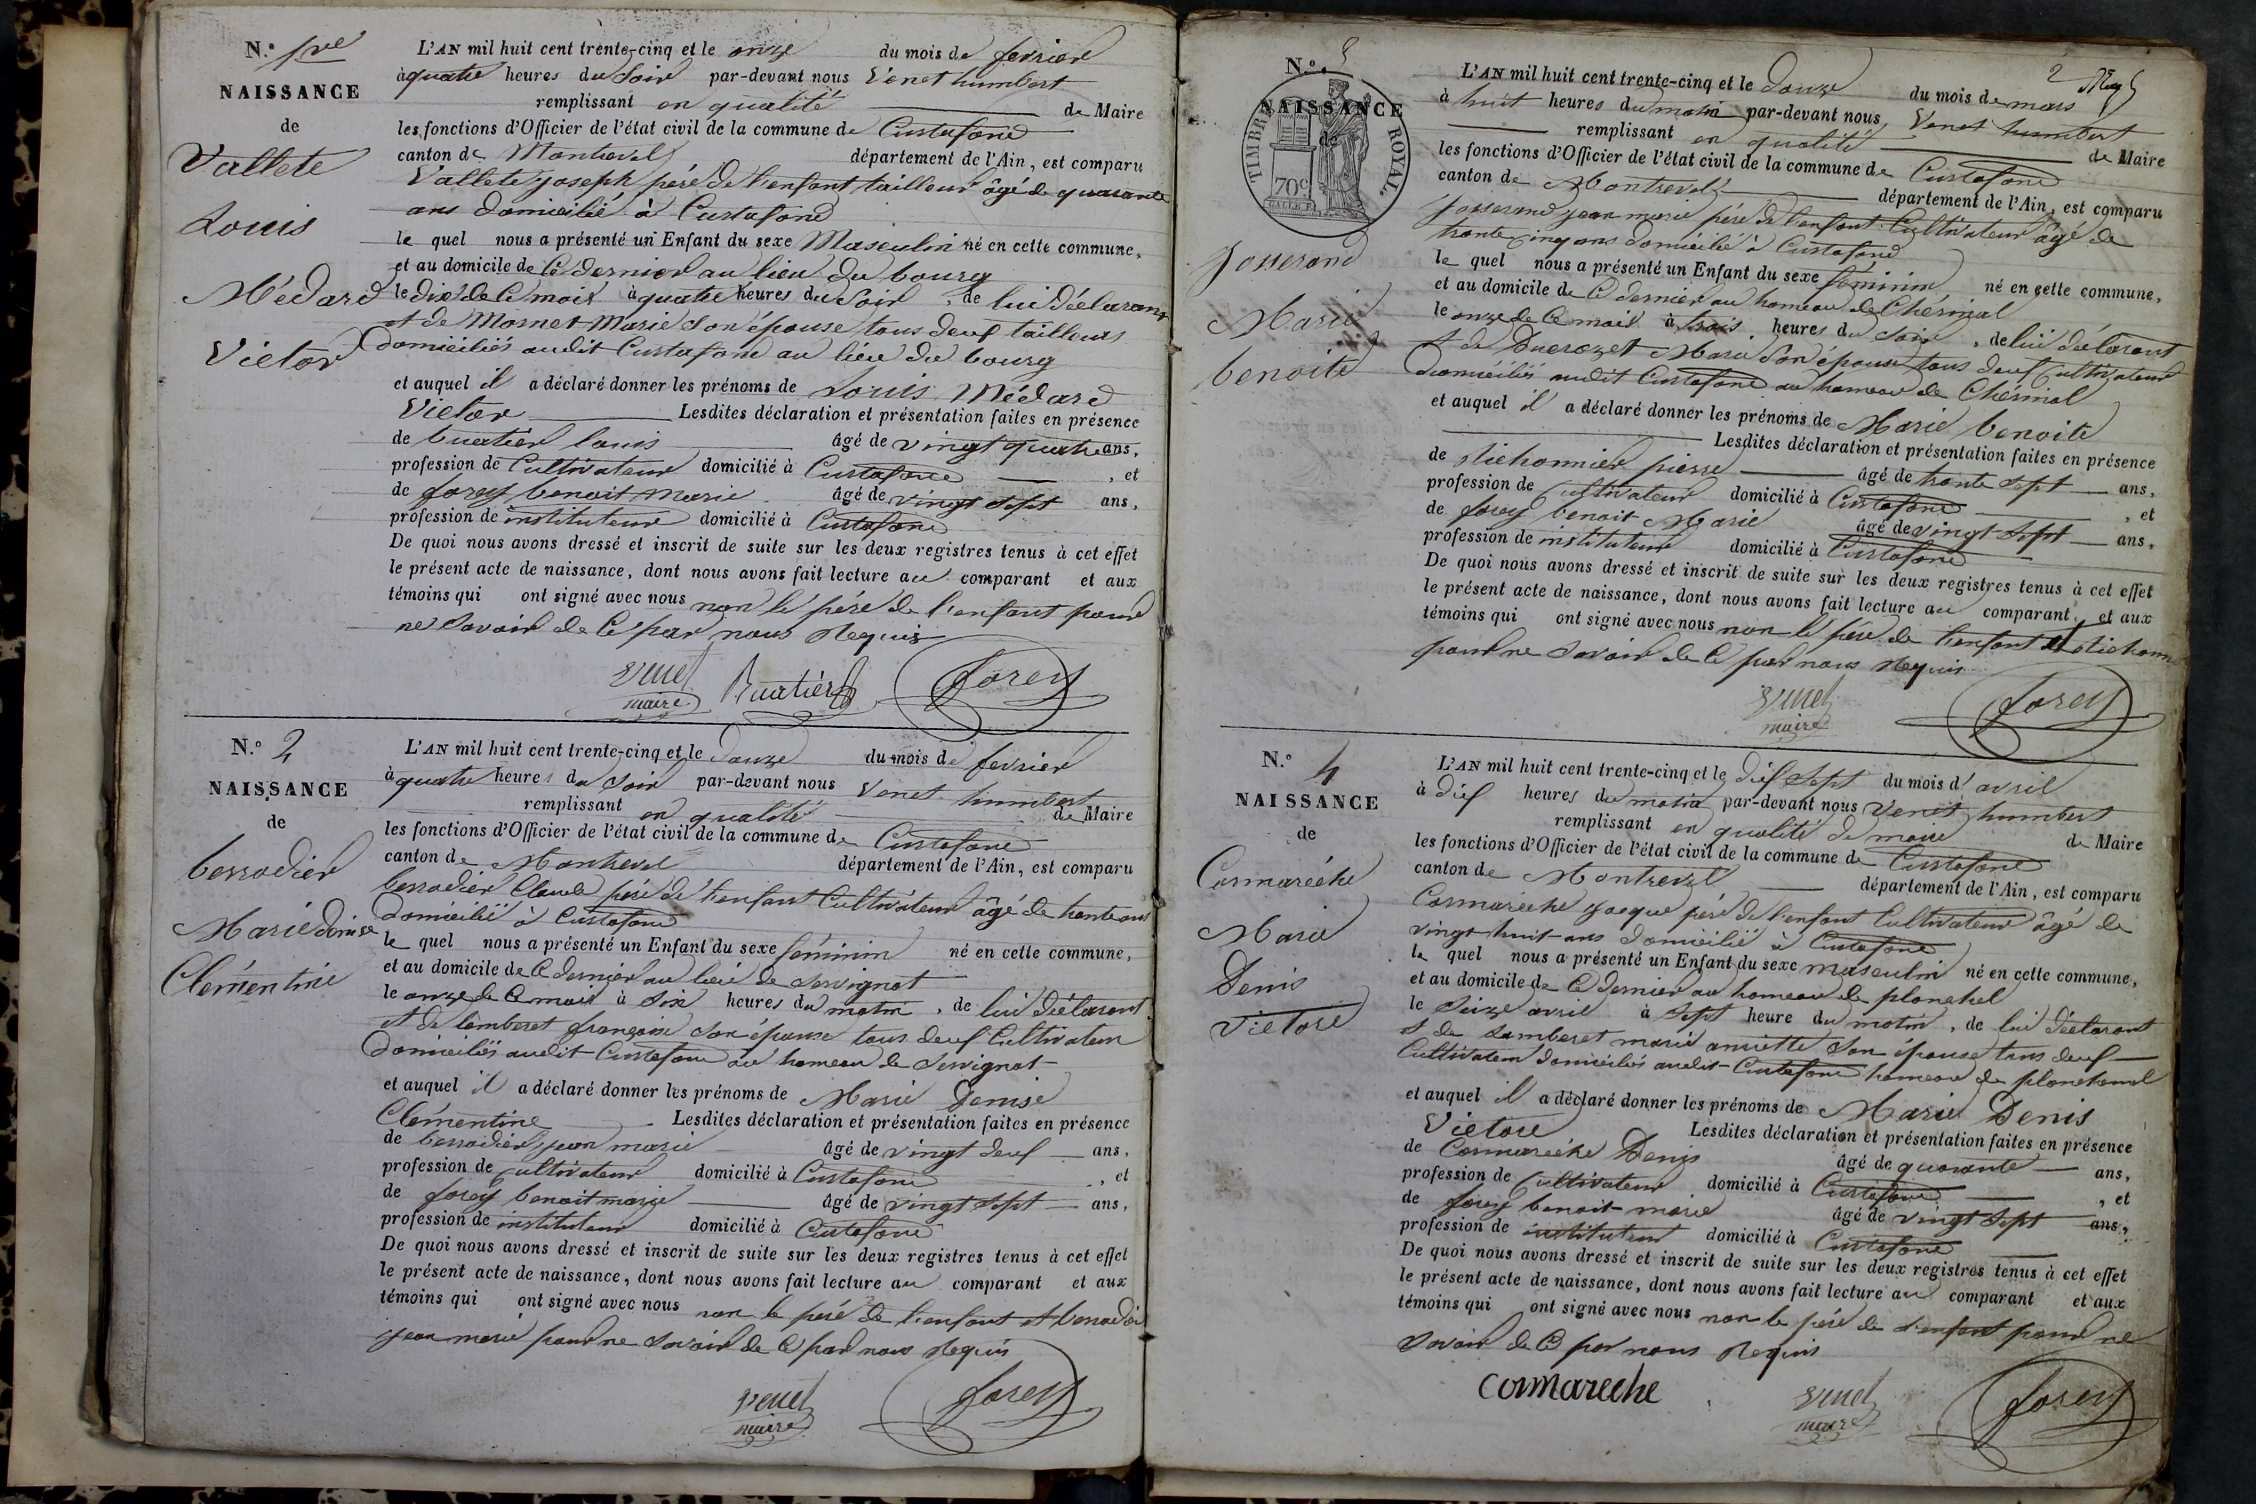 N.o 1re
NAISSANCE
de
Vallete
Louis
Médard
Victor
L'AN mil huit cent trente-cinq et le onze du mois de fevrier
à quatre heures du soir par-devant nous Venet humbert
remplissant en qualité de Maire
les fonctions d'Officier de l'état civil de la commune de Curtafond
canton de Montrevel département de l'Ain, est comparu
Vallete joseph pére de l'enfant tailleur âgé de quarante
ans domicilié à Curtafond
le quel nous a présenté un Enfant du sexe Masculin né en cette commune,
et au domicile de Ce dernier au lieu du bourg
le dix de Ce mois à quatre heures du soir, de lui déclarant
et de Mornet Marie son épouse tous deux tailleurs
domiciliés audit Curtafond au lieu du bourg
et auquel il a déclaré donner les prénoms de Louis Médard
Victor Lesdites déclaration et présentation faites en présence
de buatier louis âgé de vingt quatre ans,
profession de Cultivateur domicilié à Curtafond, et
de forey benoit marie âgé de vingt sept ans,
profession de instituteur domicilié à Curtafond
De quoi nous avons dressé et inscrit de suite sur les deux registres tenus à cet effet
le présent acte de naissance, dont nous avons fait lecture au comparant et aux
témoins qui ont signé avec nous non le pére de l'enfant pour
ne savoir de Ce par nous Requis
Venet maire Buatier forey
N.o 2
NAISSANCE
de
berrodier
Marie denise
Clémentine
L'AN mil huit cent trente-cinq et le douze du mois de fevrier
à quatre heures du soir par-devant nous Venet humbert
remplissant en qualité de Maire
les fonctions d'Officier de l'état civil de la commune de Curtafond
canton de Montrevel département de l'Ain, est comparu
berrodier Claude pére de l'enfant Cultivateur âgé de trente ans
domicilié à Curtafond
le quel nous a présenté un Enfant du sexe féminin né en cette commune,
et au domicile de Ce dernier au lieu de servignat
le onze de Ce mois à six heures du matin, de lui déclarant
et de lamberet françoise son épouse tous deux Cultivateur
domiciliés audit Curtafond au hameau de Servignat
et auquel il a déclaré donner les prénoms de Marie Denise
Clémentine Lesdites déclaration et présentation faites en présence
de berrodier jean marie âgé de vingt deux ans,
profession de cultivateur domicilié à Curtafond, et
de forey benoit marie âgé de vingt sept ans,
profession de instituteur domicilié à Curtafond
De quoi nous avons dressé et inscrit de suite sur les deux registres tenus à cet effet
le présent acte de naissance, dont nous avons fait lecture au comparant et aux
témoins qui ont signé avec nous non le pére de l'enfant et berrodier
jean marie pour ne savoir de Ce par nous Requis
Venet maire forey
2
N.o 3
NAISSANCE
de
TIMBRE ROYAL
70c
Josserand
Marie
benoite
L'AN mil huit cent trente-cinq et le douze du mois de mars
à huit heures du matin par-devant nous Venet humbert
remplissant en qualité de Maire
les fonctions d'Officier de l'état civil de la commune de Curtafond
canton de Montrevel département de l'Ain, est comparu
Josserand jean marie pére de l'enfant Cultivateur âgé de
trente cinq ans domicilié à Curtafond
le quel nous a présenté un Enfant du sexe féminin né en cette commune,
et au domicile de Ce dernier au hameau de Chérinal
le onze de Ce mois à trois heures du soir, de lui déclarant
et de Ducrozet Marie son épouse tous deux cultivateur
domiciliés audit Curtafond au hameau de Chérinal
et auquel il a déclaré donner les prénoms de Marie benoite
Lesdites déclaration et présentation faites en présence
de stichonnier pierre âgé de trente sept ans,
profession de cultivateur domicilié à Curtafond, et
de forey benoit Marie âgé de vingt sept ans,
profession de instituteur domicilié à Curtafond
De quoi nous avons dressé et inscrit de suite sur les deux registres tenus à cet effet
le présent acte de naissance, dont nous avons fait lecture au comparant, et aux
témoins qui ont signé avec nous non le pére de l'enfant et
pour ne savoir de Ce par nous Requis
Venet maire forey
N.o 4
NAISSANCE
de
Cormaréche
Marie
Denis
Victore
L'AN mil huit cent trente-cinq et le dix sept du mois d'avril
à dix heures du matin par-devant nous Venet humbert
remplissant en qualité de maire de Maire
les fonctions d'Officier de l'état civil de la commune de Curtafond
canton de Montrevel département de l'Ain, est comparu
Cormaréche jacque pére de l'enfant Cultivateur âgé de
vingt huit ans domicilié à Curtafond
le quel nous a présenté un Enfant du sexe masculin né en cette commune,
et au domicile de Ce dernier au hameau de planchel
le seize avril à sept heure du matin, de lui déclarant
et de Lamberet marie son épouse tous deux
Cultivateur domiciliés audit Curtafond hameau de
et auquel il a déclaré donner les prénoms de Marie Denis
Victore Lesdites déclaration et présentation faites en présence
de Cormaréche Denis âgé de quarante ans,
profession de Cultivateur domicilié à Curtafond, et
de forey benoit marie âgé de vingt sept ans,
profession de instituteur domicilié à Curtafond
De quoi nous avons dressé et inscrit de suite sur les deux registres tenus à cet effet
le présent acte de naissance, dont nous avons fait lecture au comparant et aux
témoins qui ont signé avec nous non le pére de l'enfant pour ne
savoir de Ce par nous Requis
cormareche Venet maire forey